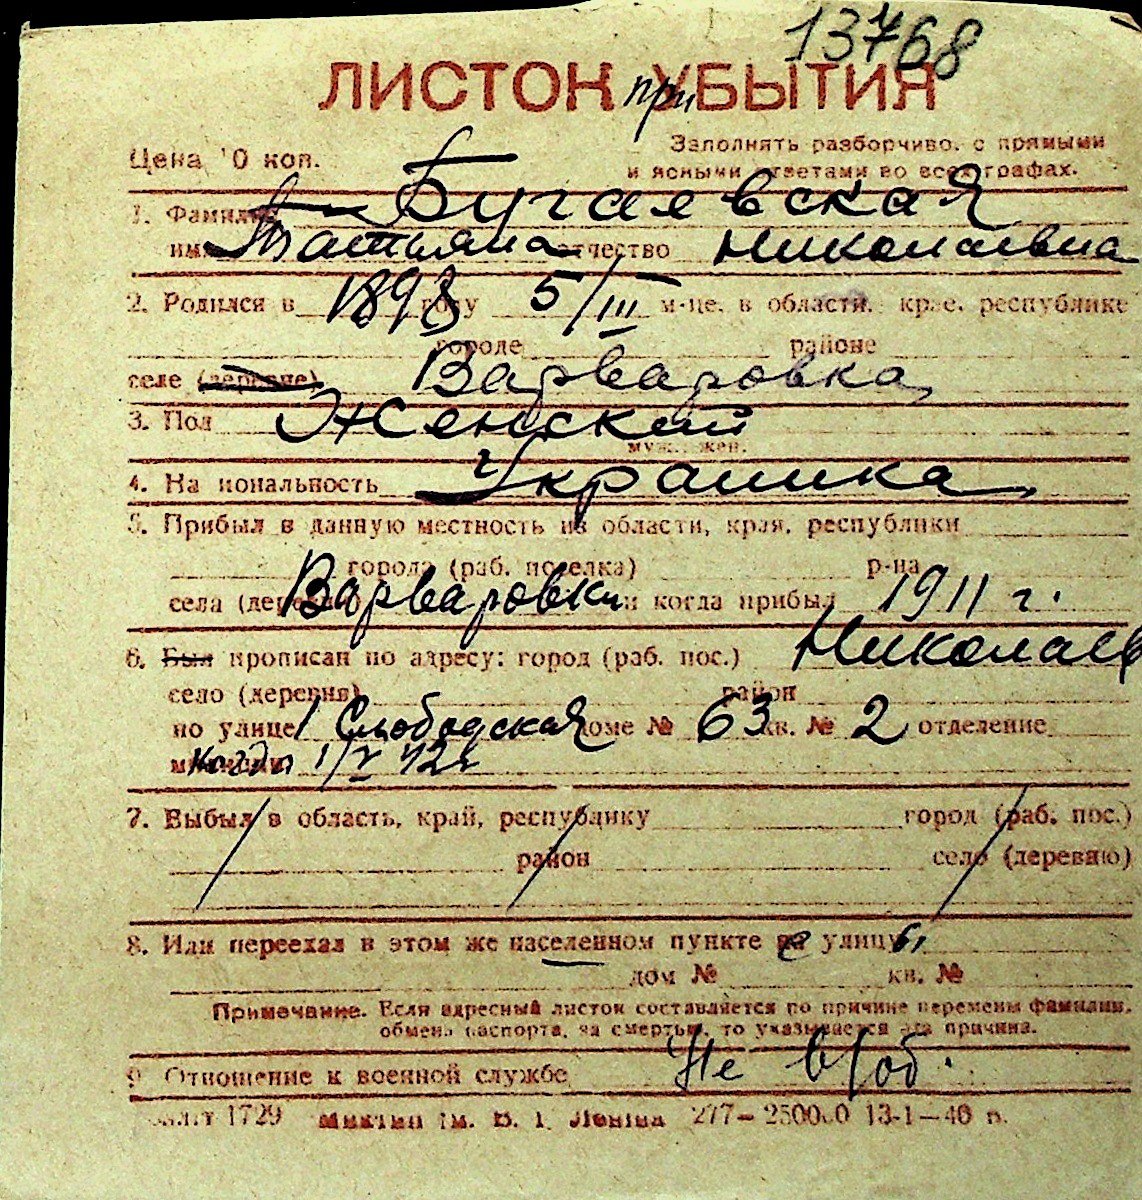 13768
ЛИСТОК при УБЫТИЯ
Цена 10 коп.
Заполнять разборчиво, с прямыми
и ясными ответами во всех графах.
1. Фамилия Бугаевская
имя Татьяна отчество Николаевна
2. Родился в 1898 году 5/III м-це. в области, крае, республике
городе районе
селе (деревне) Варваровка
3. Пол Женский
муж. жен.
4. Национальность Украинка
5. Прибыл в данную местность из области, края, республики
города (раб. поселка) р-на
села (деревни) Варваровки и когда прибыл 1911 г.
6. Был прописан по адресу: город (раб. пос.) Николаев
село (деревня) район
по улице 1 Слободская доме № 63 кв. № 2 отделение
милиции когда 1/V 42г
7. Выбыл в область, край, республику город (раб. пос.)
район село (деревню)
8. Или переехал в этом же населенном пункте на улицу
дом № кв. №
Примечание. Если адресный листок составляется по причине перемены фамилии,
обмена паспорта, за смертью, то указывается эта причина.
9. Отношение к военной службе Не в/об.
1729 ім. В. І. Леніна 277— 250000 13-1—40 р.